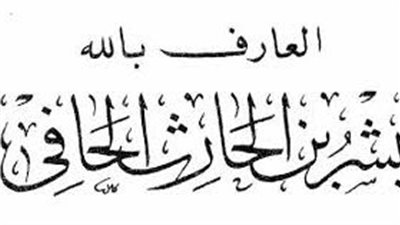 العارف بالله
بشر بن الحارث الحافي